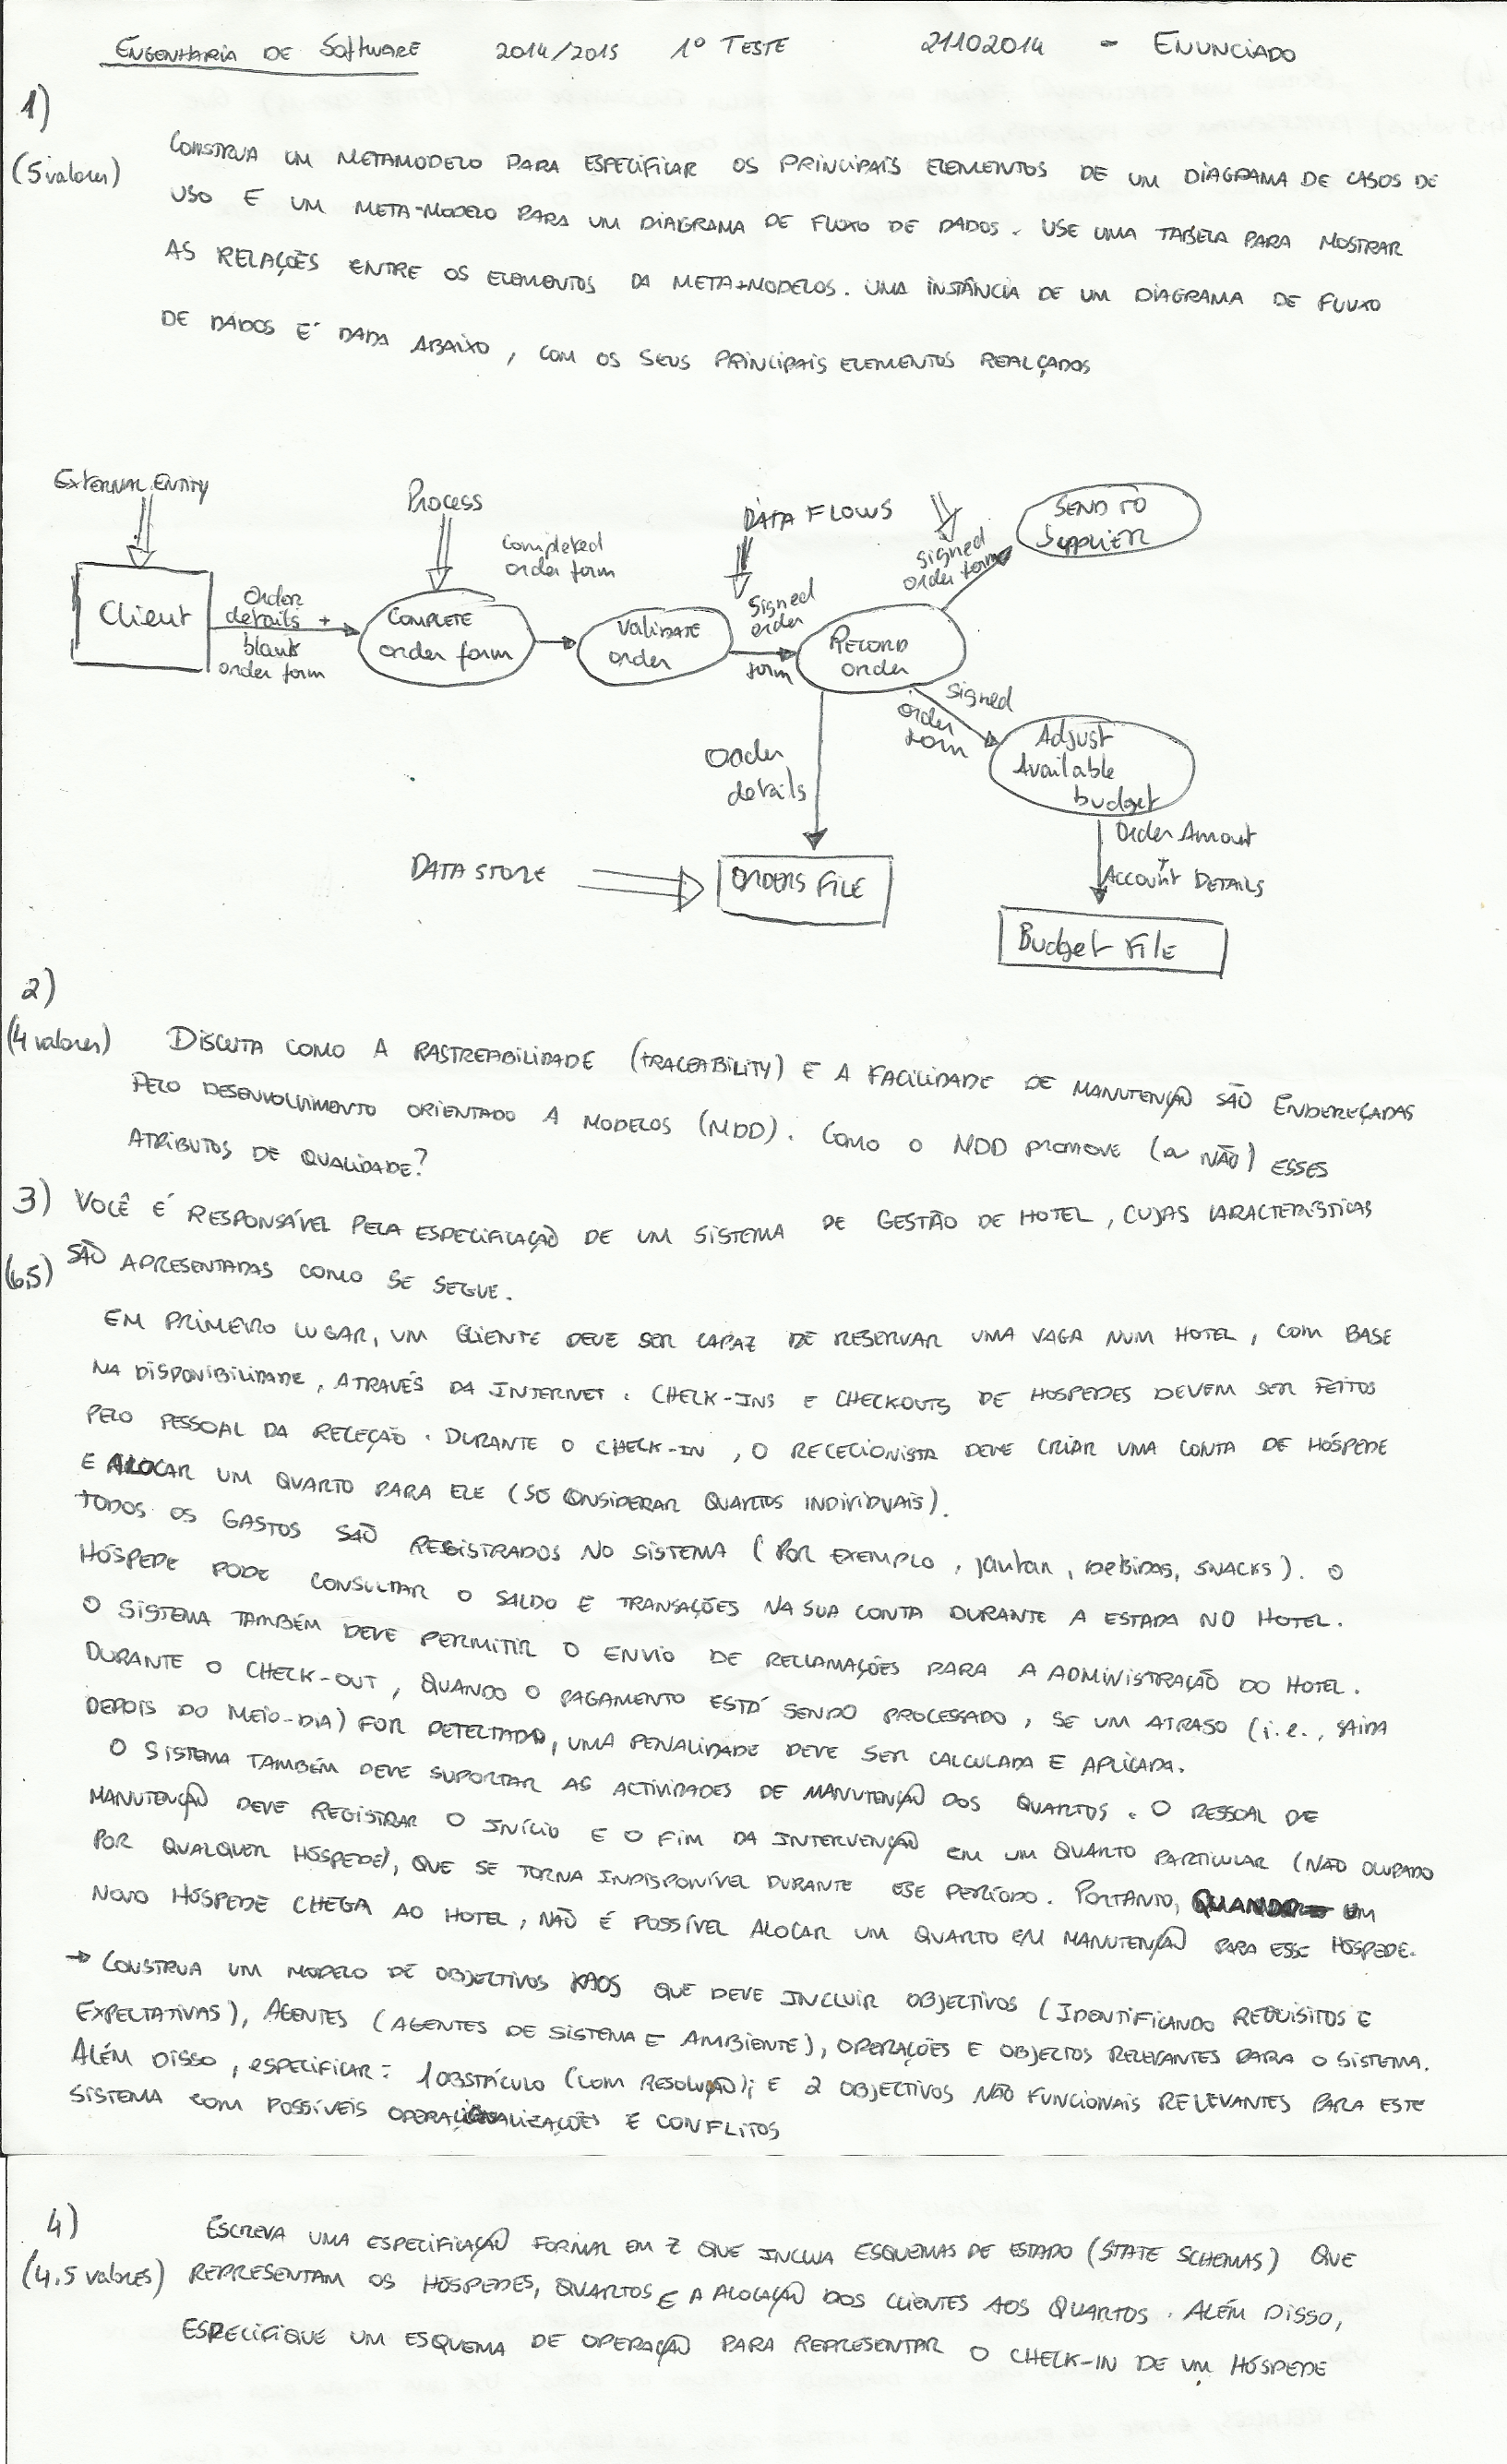 ENGENHARIA DE SOFTWARE 2014/2015 1º TESTE 21102014 - ENUNCIADO
1)
(5 valores)
CONSTRUA UM METAMODELO PARA ESPECIFICAR OS PRINCIPAIS ELEMENTOS DE UM DIAGRAMA DE CASOS DE
USO E UM META-MODELO PARA UM DIAGRAMA DE FLUXO DE DADOS. USE UMA TABELA PARA MOSTRAR
AS RELAÇÕES ENTRE OS ELEMENTOS DA META-MODELOS. UMA INSTÂNCIA DE UM DIAGRAMA DE FLUXO
DE DADOS É DADA ABAIXO, COM OS SEUS PRINCIPAIS ELEMENTOS REALÇADOS
EXTERNAL ENTITY
Process
DATA FLOWS
Client
Order
details +
blank
order form
COMPLETE
order form
Completed
order form
VALIDATE
order
Signed
order
form
RECORD
order
signed
order form
SEND TO
SUPPLIER
signed
order
form
Adjust
Available
budget
Order
details
DATA STORE
ORDERS FILE
Order Amout
+
Account DETAILS
Budget FILE
2)
(4 valores)
DISCUTA COMO A RASTREABILIDADE (TRACEABILITY) E A FACILIDADE DE MANUTENÇÃO SÃO ENDEREÇADAS
PELO DESENVOLVIMENTO ORIENTADO A MODELOS (MDD). COMO O MDD PROMOVE (ou NÃO) ESSES
ATRIBUTOS DE QUALIDADE?
3)
(6,5)
VOCÊ É RESPONSÁVEL PELA ESPECIFICAÇÃO DE UM SISTEMA DE GESTÃO DE HOTEL, CUJAS CARACTERÍSTICAS
SÃO APRESENTADAS COMO SE SEGUE.
EM PRIMEIRO LUGAR, UM CLIENTE DEVE SER CAPAZ DE RESERVAR UMA VAGA NUM HOTEL, COM BASE
NA DISPONIBILIDADE, ATRAVÉS DA INTERNET. CHECK-INS E CHECKOUTS DE HOSPEDES DEVEM SER FEITOS
PELO PESSOAL DA RECEÇÃO. DURANTE O CHECK-IN, O RECECIONISTA DEVE CRIAR UMA CONTA DE HÓSPEDE
E ALOCAR UM QUARTO PARA ELE (SÓ CONSIDERAR QUARTOS INDIVIDUAIS).
TODOS OS GASTOS SÃO REGISTRADOS NO SISTEMA (POR EXEMPLO, jantar, bebidas, SNACKS). O
HÓSPEDE PODE CONSULTAR O SALDO E TRANSAÇÕES NA SUA CONTA DURANTE A ESTADA NO HOTEL.
O SISTEMA TAMBÉM DEVE PERMITIR O ENVIO DE RECLAMAÇÕES PARA A ADMINISTRAÇÃO DO HOTEL.
DURANTE O CHECK-OUT, QUANDO O PAGAMENTO ESTÁ SENDO PROCESSADO, SE UM ATRASO (i.e., SAÍDA
DEPOIS DO MEIO-DIA) FOR DETECTADO, UMA PENALIDADE DEVE SER CALCULADA E APLICADA.
O SISTEMA TAMBÉM DEVE SUPORTAR AS ACTIVIDADES DE MANUTENÇÃO DOS QUARTOS. O PESSOAL DE
MANUTENÇÃO DEVE REGISTRAR O INÍCIO E O FIM DA INTERVENÇÃO EM UM QUARTO PARTICULAR (NÃO OCUPADO
POR QUALQUER HÓSPEDE), QUE SE TORNA INDISPONÍVEL DURANTE ESSE PERÍODO. PORTANTO, QUANDO UM
NOVO HÓSPEDE CHEGA AO HOTEL, NÃO É POSSÍVEL ALOCAR UM QUARTO EM MANUTENÇÃO PARA ESSE HÓSPEDE.
→ CONSTRUA UM MODELO DE OBJECTIVOS KAOS QUE DEVE INCLUIR OBJECTIVOS (IDENTIFICANDO REQUISITOS E
EXPECTATIVAS), AGENTES (AGENTES DE SISTEMA E AMBIENTE), OPERAÇÕES E OBJECTOS RELEVANTES PARA O SISTEMA.
ALÉM DISSO, especificar: 1 OBSTÁCULO (COM RESOLUÇÃO); E 2 OBJECTIVOS NÃO FUNCIONAIS RELEVANTES PARA ESTE
SISTEMA com POSSÍVEIS OPERACIONALIZAÇÕES E CONFLITOS
4)
(4.5 valores)
ESCREVA UMA ESPECIFICAÇÃO FORMAL EM Z QUE INCLUA ESQUEMAS DE ESTADO (STATE SCHEMAS) QUE
REPRESENTAM OS HÓSPEDES, QUARTOS E A ALOCAÇÃO DOS CLIENTES AOS QUARTOS. ALÉM DISSO,
ESPECIFIQUE UM ESQUEMA DE OPERAÇÃO PARA REPRESENTAR O CHECK-IN DE UM HÓSPEDE